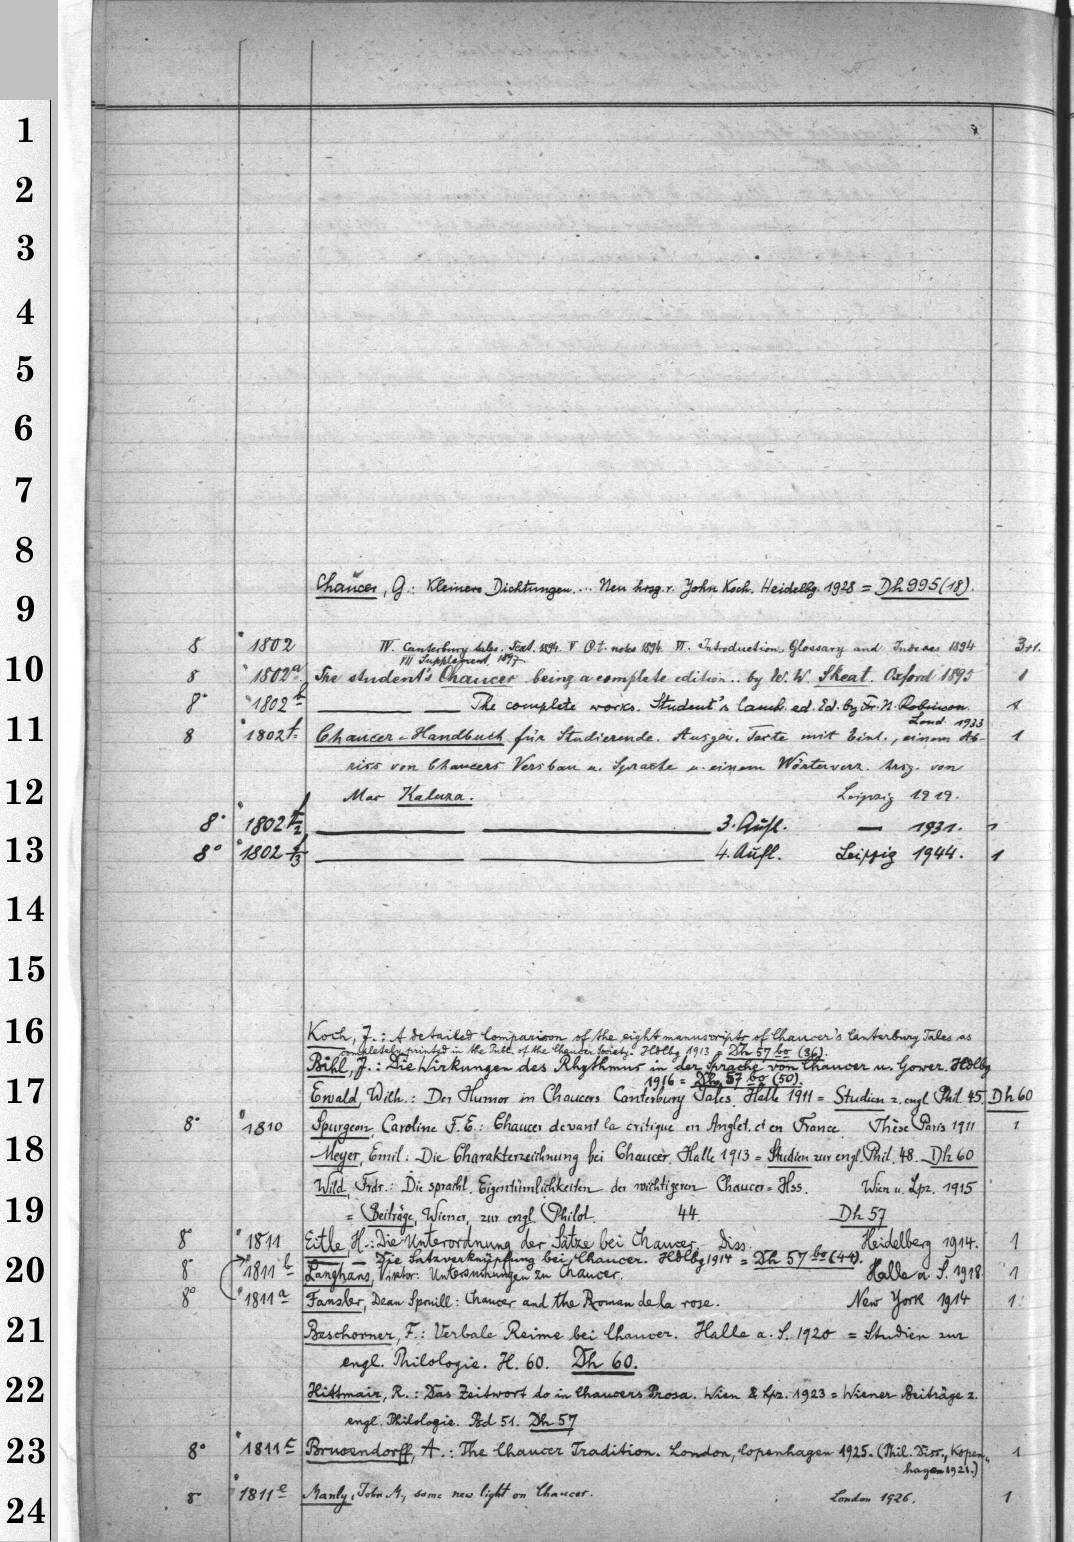 1
2
3
4
5
6
7
8
Chaucer, G.: Kleinere Dichtungen... Neu hrsg. v. John Koch. Heidelbg. 1928 = Dh 995 (18).
9
8 1802 IV. Canterbury tales. Text. 1894. V notes 1894. VI. Introduction, Glossary and Indexes 1894 3+1.
VII Supplement 1897
10
8 1802a The student's Chaucer being a complete edition.. by W. W. Skeat. Oxford 1895 1
8° 1802b ——— —— The complete works. Student's Cambr. ed. Ed. by Fr. N. Robinson. 1
Lond. 1933
11
8 1802f Chaucer-Handbuch für Studierende. Ausgew. Texte mit Einl., einem Ab- 1
riss von Chaucers Versbau u. Sprache u. einem Wörterverz. hrsg. von
12
Max Kaluza. Leipzig 1919.
8° 1802 f/2 ——— ——— 3. Aufl. — 1931. 1
13
8° 1802 f/3 ——— ——— 4. Aufl. Leipzig 1944. 1
14
15
16
Koch, J.: A detailed Comparison of the eight manuscripts of Chaucer's Canterbury Tales as
completely printed in the Publ. of the Chaucer Society. Hdlbg 1913 = Dh 57 bo (36).
Bihl, J.: Die Wirkungen des Rhythmus in der Sprache von Chaucer u. Gower. Hdlbg
1916 = Dh 57 bo (50).
17
Ewald, Wilh.: Der Humor in Chaucers Canterbury Tales. Halle 1911 = Studien z. engl Phil. 45. Dh 60
8° 1810 Spurgeon, Caroline F. E.: Chaucer devant la critique en Anglet. et en France. Thèse Paris 1911 1
18
Meyer, Emil: Die Charakterzeichnung bei Chaucer. Halle 1913 = Studien zur engl. Phil. 48. Dh 60
Wild, Frdr.: Die sprachl. Eigentümlichkeiten der wichtigeren Chaucer-Hss. Wien u. Lpz. 1915
19
= Beiträge, Wiener, zur engl. Philol. 44. Dh 57
8° 1811 Eitle, H.: Die Unterordnung der Sätze bei Chaucer. Diss. Heidelberg 1914. 1
— — Die Satzverknüpfung bei Chaucer. Hdlbg 1914 = Dh 57 bo (44).
20
8° 1811b Langhans, Viktor: Untersuchungen zu Chaucer. Halle a. S. 1918 1
8° 1811a Fansler, Dean Spruill: Chaucer and the Roman de la rose. New York 1914 1
21
Beschorner, F.: Verbale Reime bei Chaucer. Halle a. S. 1920 = Studien zur
engl. Philologie. H. 60. Dh 60.
22
Hittmair, R.: Das Zeitwort do in Chaucers Prosa. Wien & Lpz. 1923 = Wiener Beiträge z.
engl. Philologie. Bd 51. Dh 57
23
8° 1811c Brusendorff, A.: The Chaucer Tradition. London, Copenhagen 1925. (Phil. Diss., Kopen- 1
hagen 1921.)
24
8 1811e Manly, John M., some new light on Chaucer. London 1926. 1